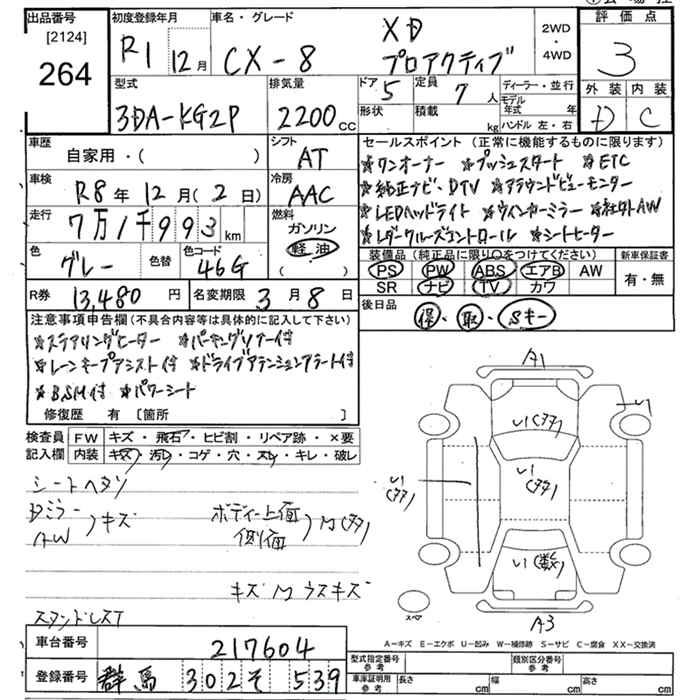 出品番号
[2124]
264
初度登録年月
R1 12月
車名・グレード
CX-8
XD
プロアクティブ
2WD
・
4WD
評価点
3
型式
3DA-KG2P
排気量
2200cc
ドア
5
定員
7人
形状
積載
kg
ディーラー・並行
モデル年式 年
ハンドル 左・右
外装 内装
D C
車歴
自家用・( )
シフト
AT
車検
R8年12月(2日)
冷房
AAC
走行
7万1千993km
燃料
ガソリン
軽油
( )
色
グレー
色替
色コード
46G
R券
13,480円
名変期限 3月8日
セールスポイント (正常に機能するものに限ります)
☆ワンオーナー ☆プッシュスタート ☆ETC
☆純正ナビ・DTV ☆アラウンドビューモニター
☆LEDヘッドライト ☆ウインカーミラー ☆社外AW
☆レダークルーズコントロール ☆シートヒーター
装備品(純正品に限り○をつけてください)
新車保証書
PS PW ABS エアB AW
有・無
SR ナビ TV カワ
後日品
保・取・Sキー
注意事項申告欄(不具合内容等は具体的に記入して下さい)
☆ステアリングヒーター ☆パーキングソナー付
☆レーンキープアシスト付 ☆ドライブアテンションアラート付
☆BSM付 ☆パワーシート
修復歴 有 [箇所 ]
検査員
記入欄
FW キズ・飛石・ヒビ割・リペア跡・×要
内装 キズ・汚レ・コゲ・穴・スレ・キレ・破レ
シートヘタリ
Dミラー
AW
)キズ
ボディー上面
側面
)M(タタ)
キズMウスキズ
スタンドレスT
A1
い(タタ)
い
い(タタ)
い(タタ)
い(数)
A3
スペア
A-キズ E-エクボ U-凹み W-補修跡 S-サビ C-腐食 XX-交換済
車台番号
217604
登録番号
群馬 302 そ 539
型式指定番号
参考
類別区分番号
参考
車庫証明用
参考
長さ cm
幅 cm
高さ cm